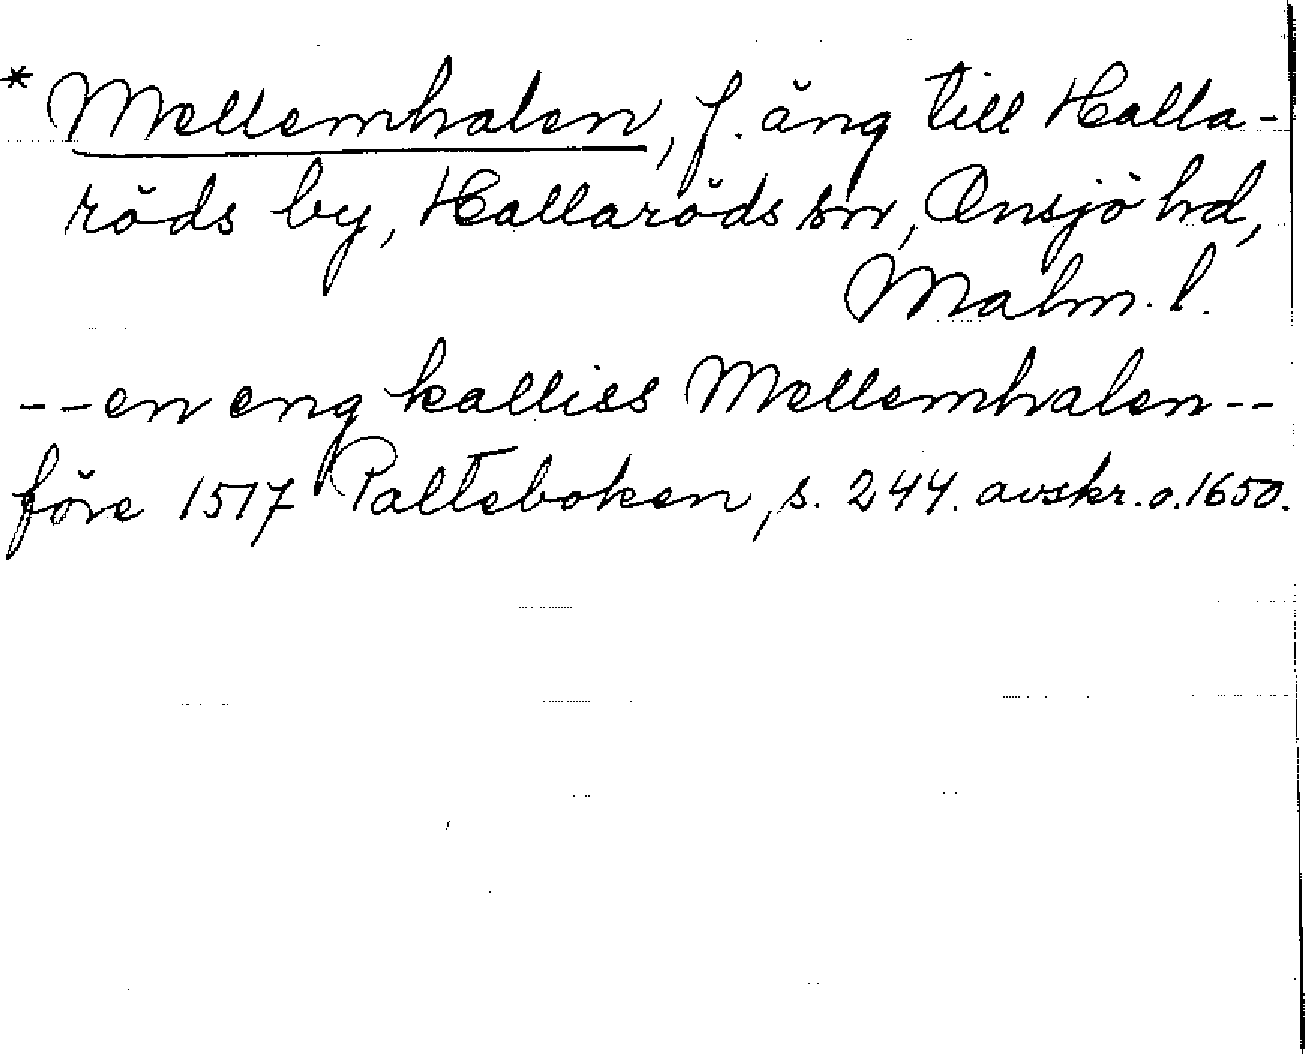 * Mellemhalen, f. äng till Halla-
röds by, Hallaröds sn, Onsjö hd,
Malm. l.
-- en eng kalliss Mellemhalen --
före 1517 Palteboken, s. 244. avskr. o. 1650.